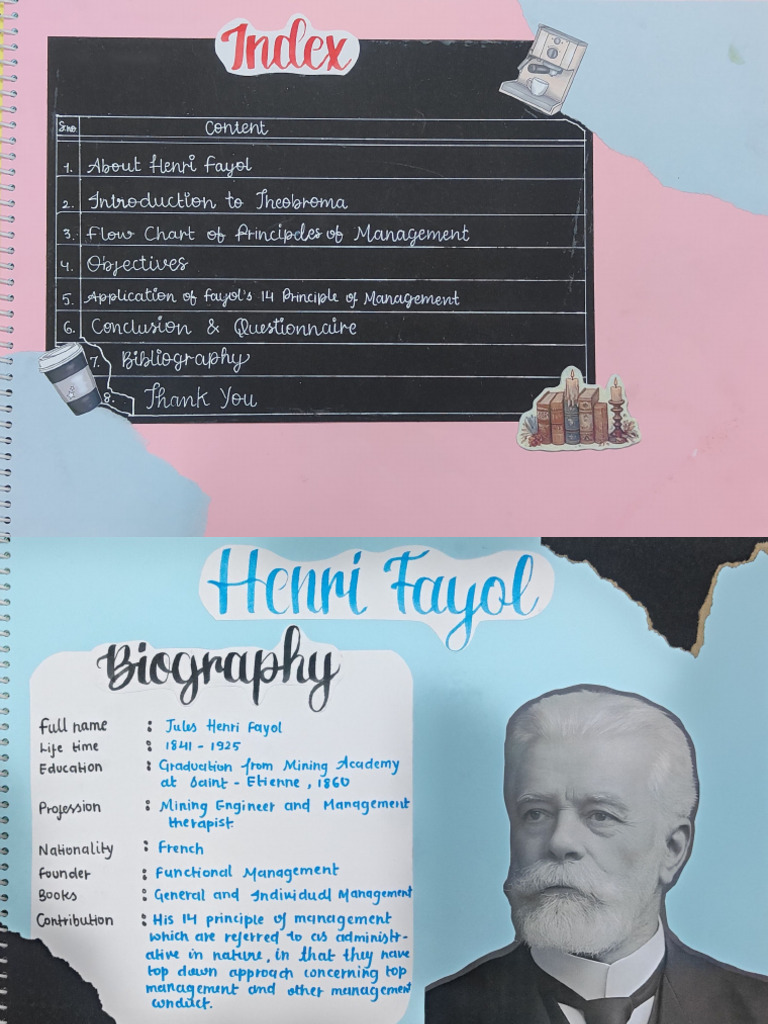 Index
S.no. Content
1. About Henri Fayol
2. Introduction to Theobroma
3. Flow Chart of Principles of Management
4. Objectives
5. Application of Fayol's 14 Principle of Management
6. Conclusion & Questionnaire
7. Bibliography
8. Thank You
Henri Fayol
Biography
Full name : Jules Henri Fayol
Life time : 1841 - 1925
Education : Graduation from Mining Academy
at Saint - Etienne, 1860
Profession : Mining Engineer and Management
therapist.
Nationality : French
Founder : Functional Management
Books : General and Individual Management
Contribution : His 14 principle of management
which are referred to as administr-
ative in nature, in that they have
top down approach concerning top
management and other management
conduct.